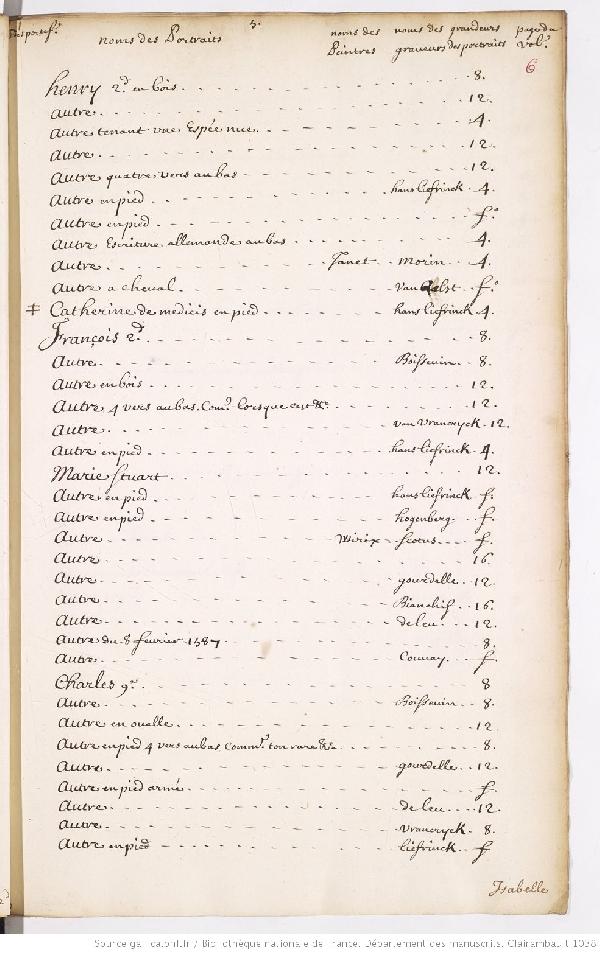 5.
noms des Portraits noms des Peintres noms des graveurs grandeurs des portraits page du vol.e
6
henry 2.d en bois 8.
Autre 12.
Autre tenant une Espée nue 4.
Autre 12
Autre quatre vers au bas 12
Autre en pied hans liefrinck 4.
Autre en pied f.o
Autre Escriture allemande au bas 4.
Autre Janet morin 4.
Autre a cheval van f.o
‡ Catherine de medicis en pied hans liefrinck 4.
François 2.d 8.
Autre Boissevin 8.
Autre en bois 12.
Autre 4 vers au bas. Com.t lorsque c'est &c 12.
Autre van Vrancryck 12.
Autre en pied hans liefrinck 4.
Marie Stuart 12.
Autre en pied hans liefrinck f.
Autre en pied hogenberg f.
Autre Mirix f.
Autre 16
Autre gourdelle 12
Autre 16.
Autre de leu 12.
Autre du 8 fevrier 1587 8.
Autre Couvay f.
Charles 9.e 8
Autre Boissevin 8.
Autre en ovalle 12
Autre en pied 4 vers au bas comm.t ton rare &c 8.
Autre gourdelle 12.
Autre en pied armé f.
Autre de leu 12.
Autre Vrancryck 8.
Autre en pied liefrinck f
Isabelle
Source gallica.bnf.fr / Bibliothèque nationale de France. Département des manuscrits. Clairambault 1038